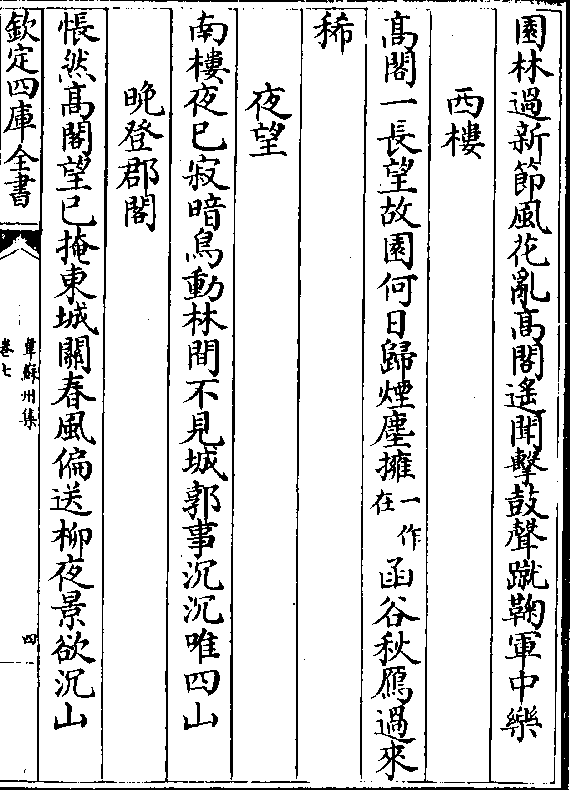 園林過新節風花亂髙閣遥聞擊鼓聲蹴鞠軍中樂
西樓
髙閣一長望故園何日歸煙塵擁一作在函谷秋鴈過來
稀
夜望
南樓夜已寂暗鳥動林間不見城郭事沉沉唯四山
晚登郡閣
悵然髙閣望已掩東城關春風偏送柳夜景欲沉山
欽定四庫全書
韋蘇州集
卷七
四